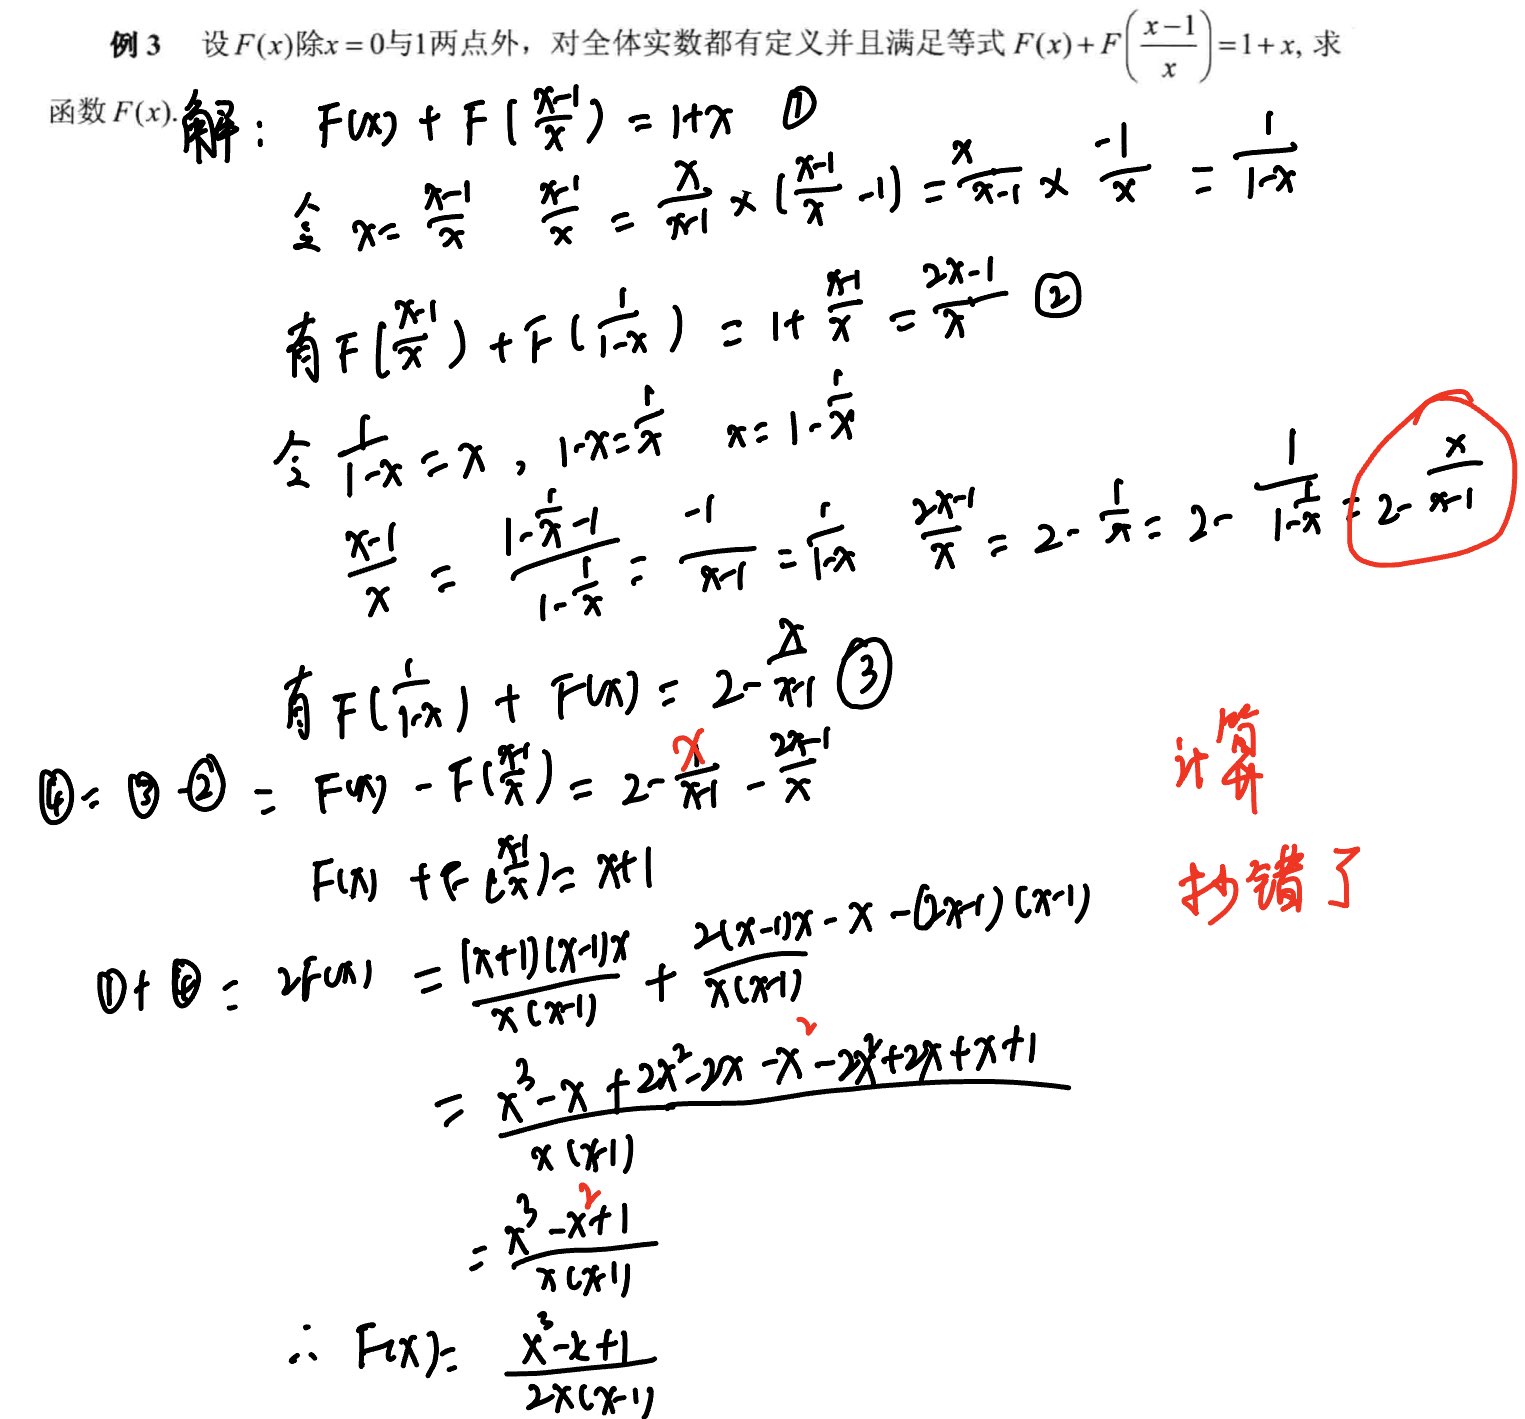 例 3 设 F(x)除x = 0与1两点外，对全体实数都有定义并且满足等式 F(x)+F((x-1)/x)=1+x, 求
函数 F(x).
解： F(x) + F(x-1/x) = 1+x ①
令 x= x-1/x x-1/x = x/x-1 × (x-1/x -1) = x/x-1 × -1/x = 1/1-x
有 F(x-1/x) + F(1/1-x) = 1+ x-1/x = 2x-1/x ②
令 1/1-x = x , 1-x= 1/x x= 1- 1/x
x-1/x = (1-1/x-1)/(1-1/x) = -1/x-1 = 1/1-x 2x-1/x = 2- 1/x = 2- 1/(1-1/x) = 2- x/x-1
有 F(1/1-x) + F(x) = 2- x/x-1 ③
④= ③-② = F(x) - F(x-1/x) = 2- x/x-1 - 2x-1/x
计算
F(x) + F(x-1/x)= x+1
抄错了
①+④ = 2F(x) = (x+1)(x-1)x/x(x-1) + 2(x-1)x - x -(2x-1)(x-1)/x(x-1)
= x³-x+2x²-2x-x²-2x²+2x+x+1/x(x-1)
= x³-x²+1/x(x-1)
∴ F(x)= x³-x+1/2x(x-1)